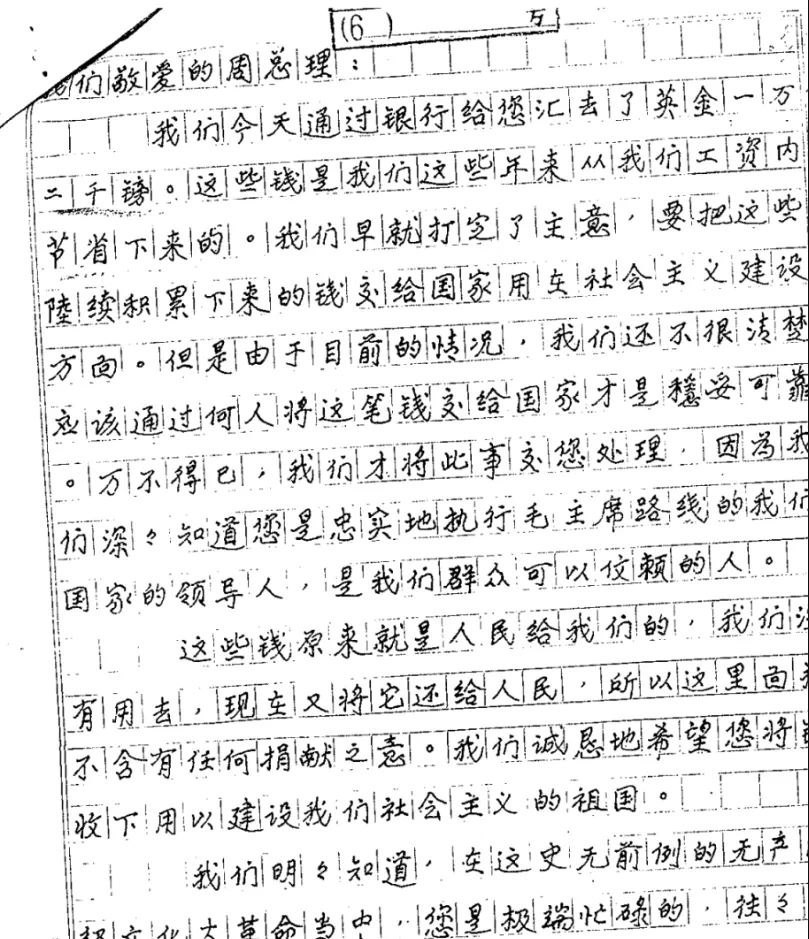 (6) 万
我们敬爱的周总理：
我们今天通过银行给您汇去了英金一万
二千镑。这些钱是我们这些年来从我们工资内
节省下来的。我们早就打定了主意，要把这些
陸续积累下来的钱交给国家用在社会主义建设
方面。但是由于目前的情况，我们还不很清楚
应该通过何人将这笔钱交给国家才是穩妥可靠
。万不得已，我们才将此事交您处理，因为我
们深々知道您是忠实地执行毛主席路线的我们
国家的领导人，是我们群众可以信赖的人。
这些钱原来就是人民给我们的，我们
有用去，现在又将它还给人民，所以这里面
不含有任何捐献之意。我们诚恳地希望您将
收下用以建设我们社会主义的祖国。
我们明々知道，在这史无前例的无产
级文化大革命当中，您是极端忙碌的，往々